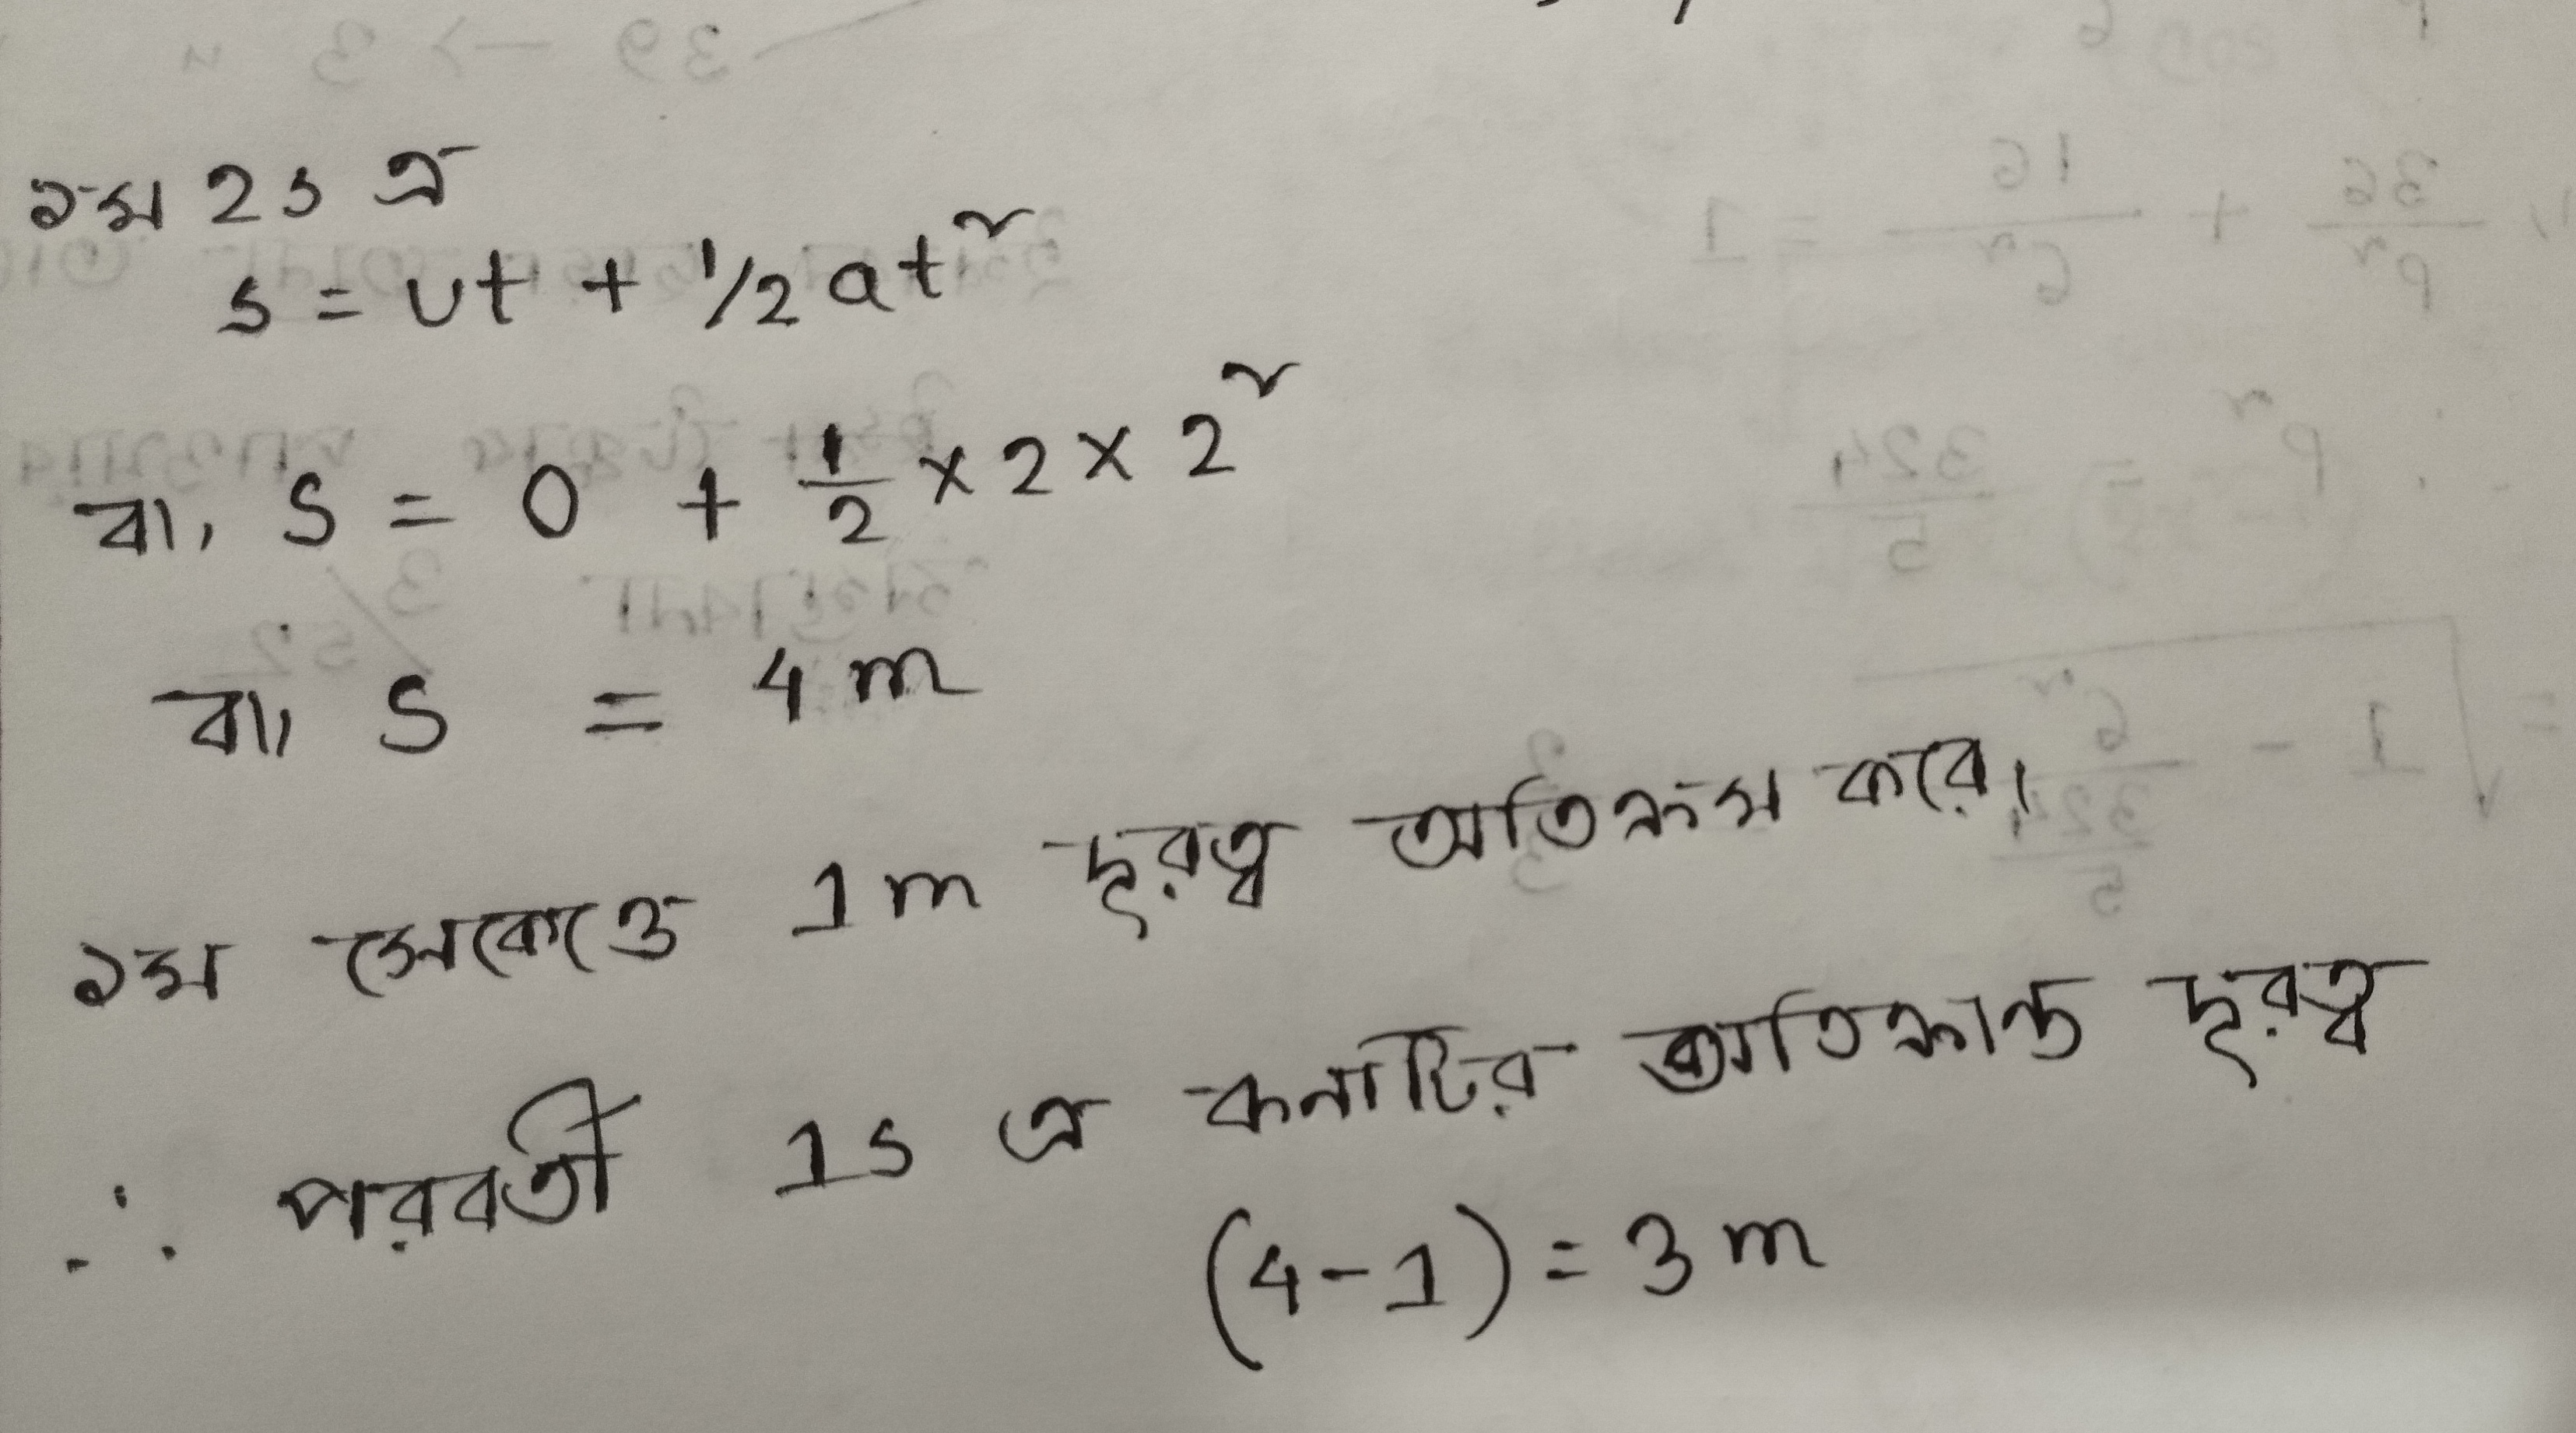 ১ম 2s এ
s = ut + 1/2 at²
বা, s = 0 + 1/2 × 2 × 2²
বা, s = 4 m
১ম সেকেন্ডে 1m দূরত্ব অতিক্রম করে।
∴ পরবর্তী 1s এ কনাটির অতিক্রান্ত দূরত্ব
(4-1) = 3 m